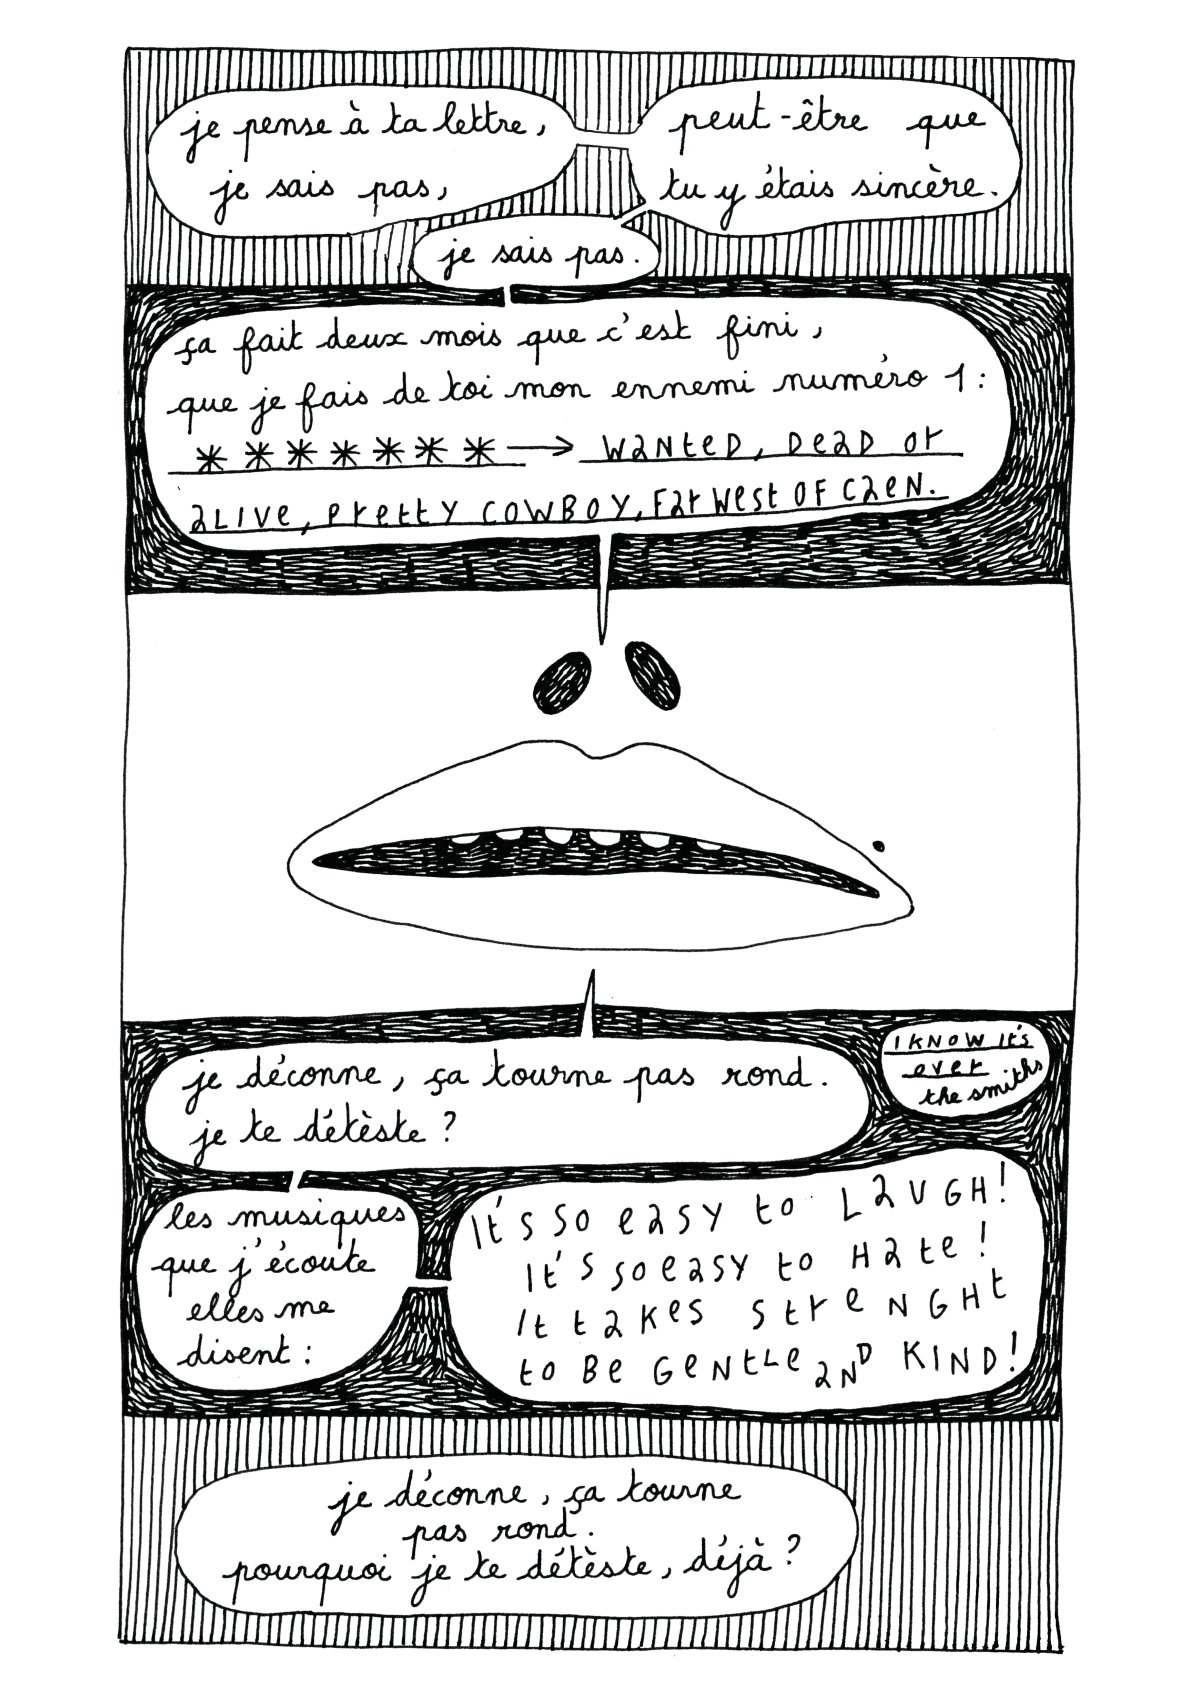 je pense à ta lettre,
je sais pas,
peut-être que
tu y étais sincère.
je sais pas.
ça fait deux mois que c'est fini,
que je fais de toi mon ennemi numéro 1 :
******* → WANTED, DEAD OR
ALIVE, PRETTY COWBOY, FAR WEST OF CAEN.
je déconne, ça tourne pas rond.
je te détèste ?
I KNOW IT'S
OVER
the smiths
les musiques
que j'écoute
elles me
disent :
IT'S SO EASY TO LAUGH!
IT'S SO EASY TO HATE!
IT TAKES STRENGHT
TO BE GENTLE AND KIND!
je déconne, ça tourne
pas rond.
pourquoi je te détèste, déjà ?